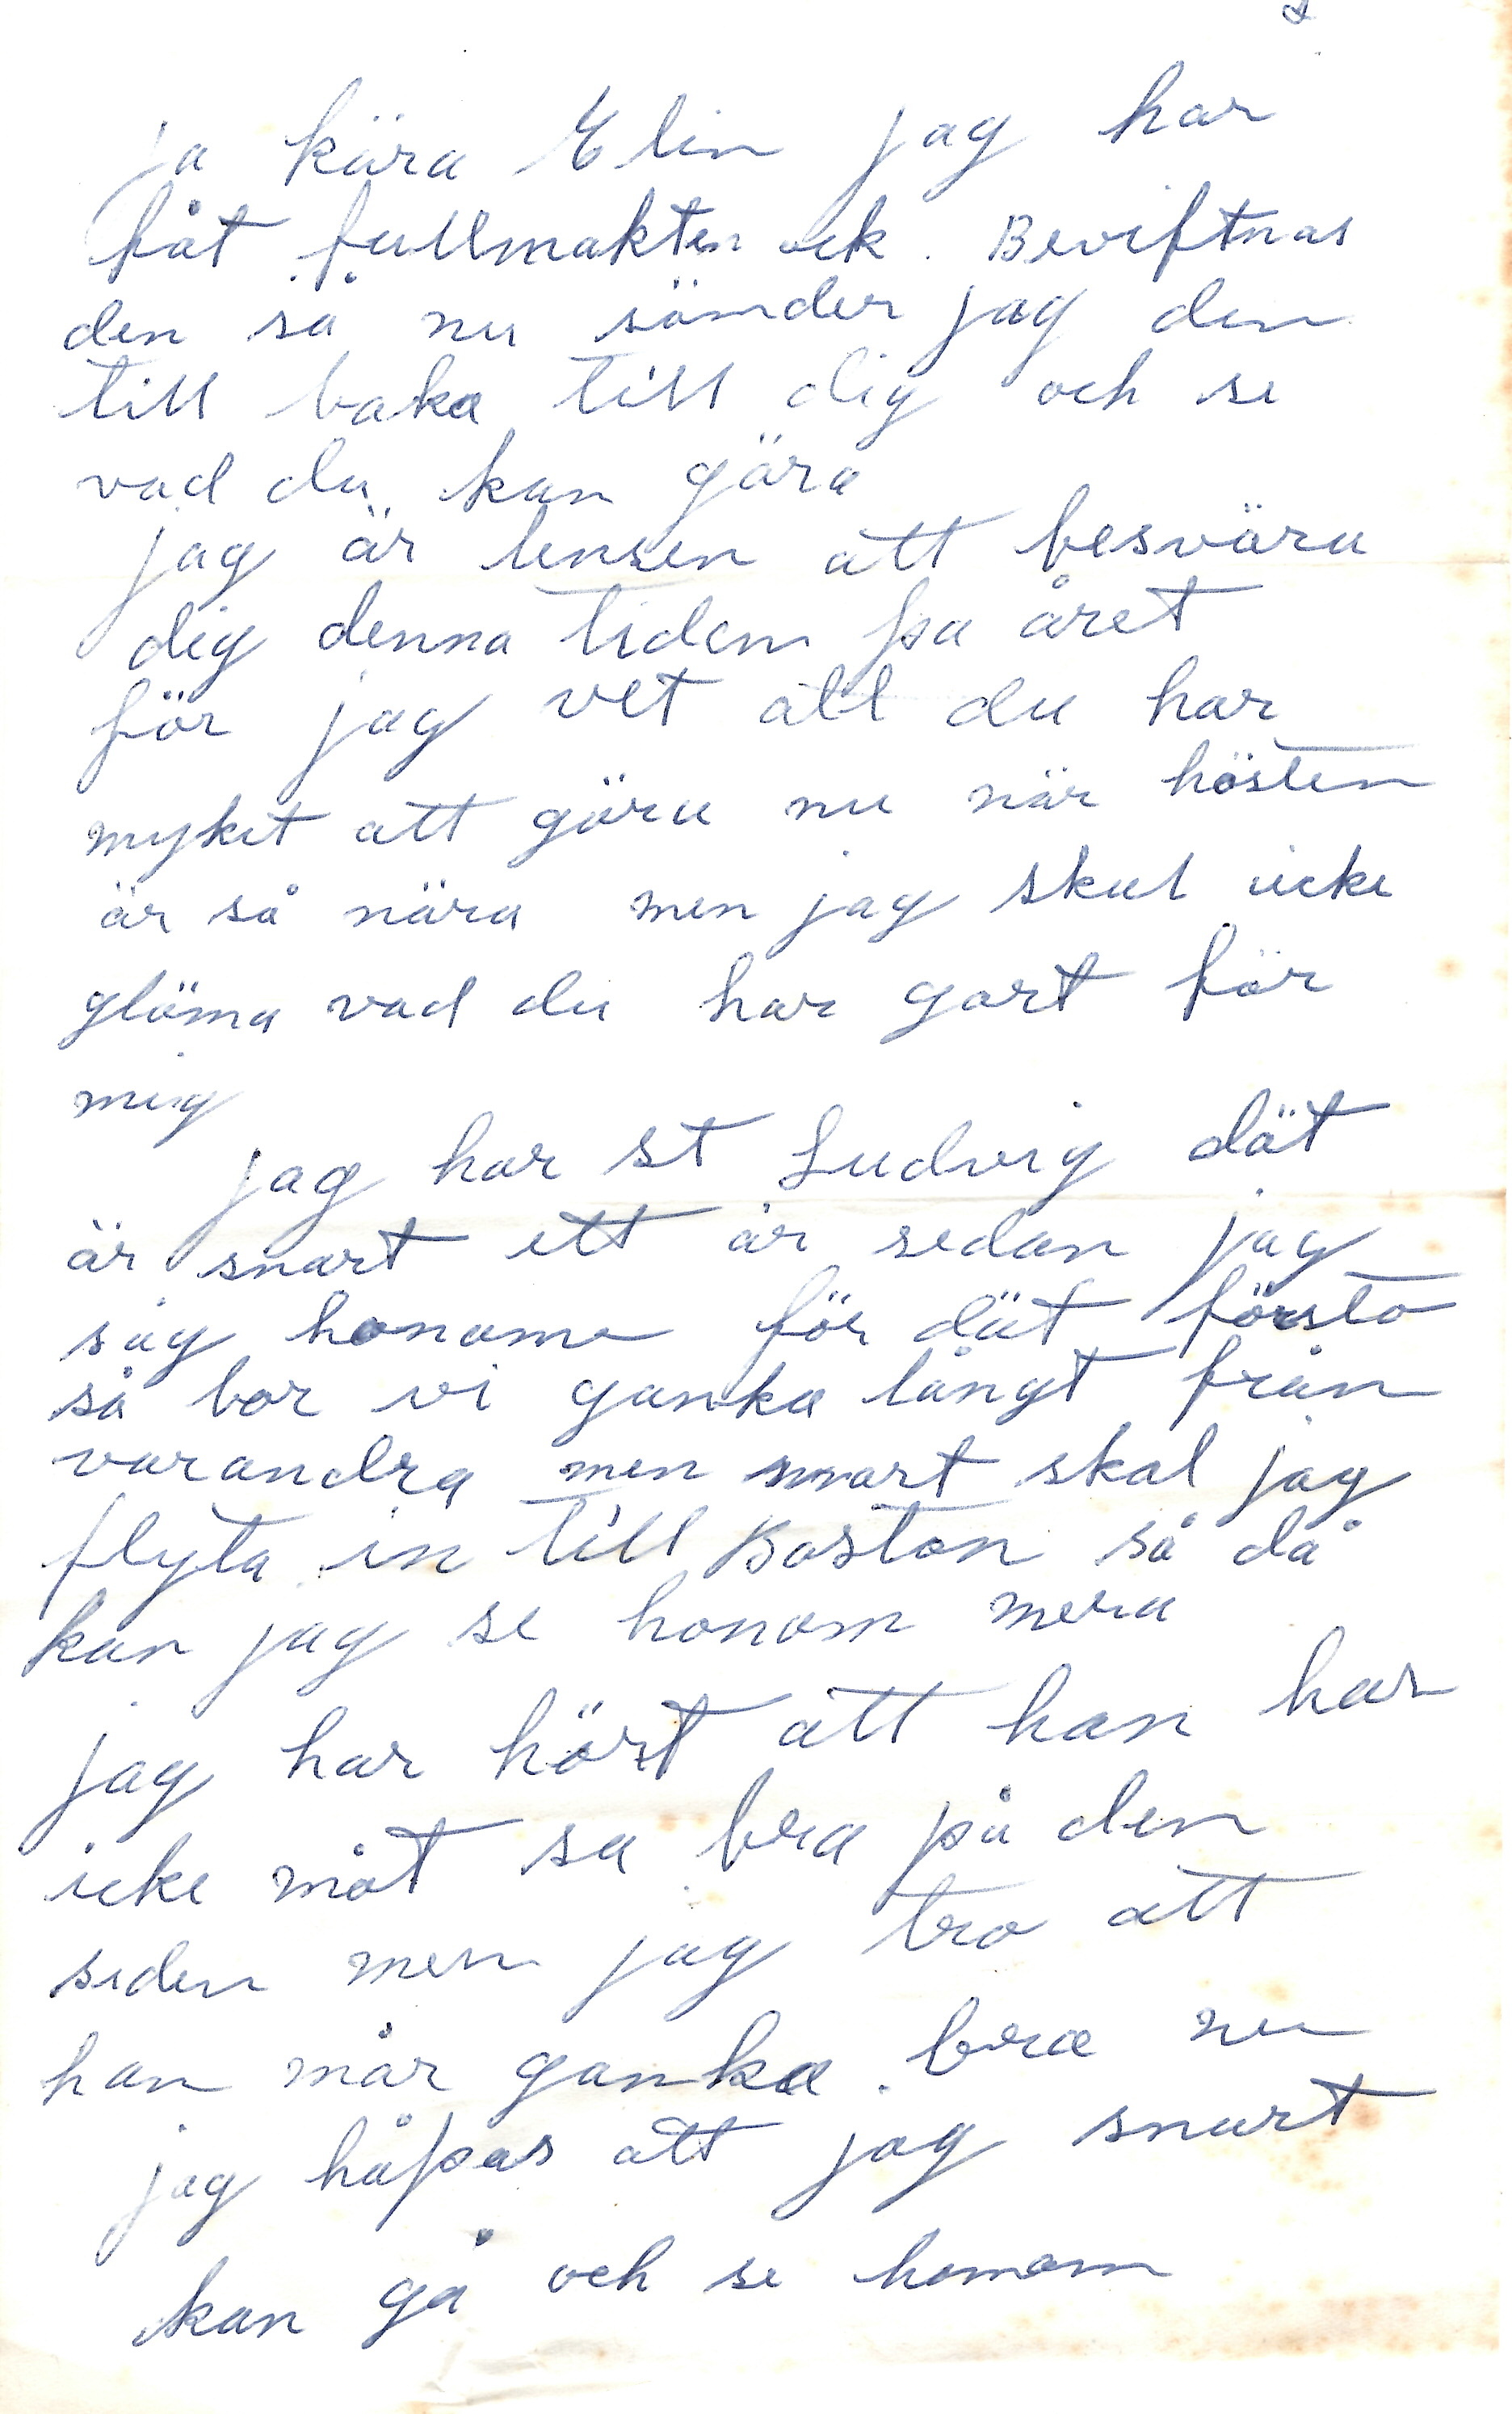 2
ja kära Elin jag har
fåt fullmakten ock. Beviftnas
den så nu sänder jag den
till baka till dig och se
vad du kan göra
jag är lensen att besvära
dig denna tiden pa året
för jag vet att du har
myket att göra nu när hösten
är så nära men jag skul icke
glöma vad du har gort för
mig
jag har st Ludvig dät
är snart ett år sedan jag
såg honome för dät första
så bor vi ganka långt från
varandra men snart skal jag
flyta in till Boston så då
kan jag se honom mera
jag har hört att han har
icke måt sa bra på den
siden men jag tro att
han mår ganka bra nu
jag håpas att jag snart
kan gå och se honom